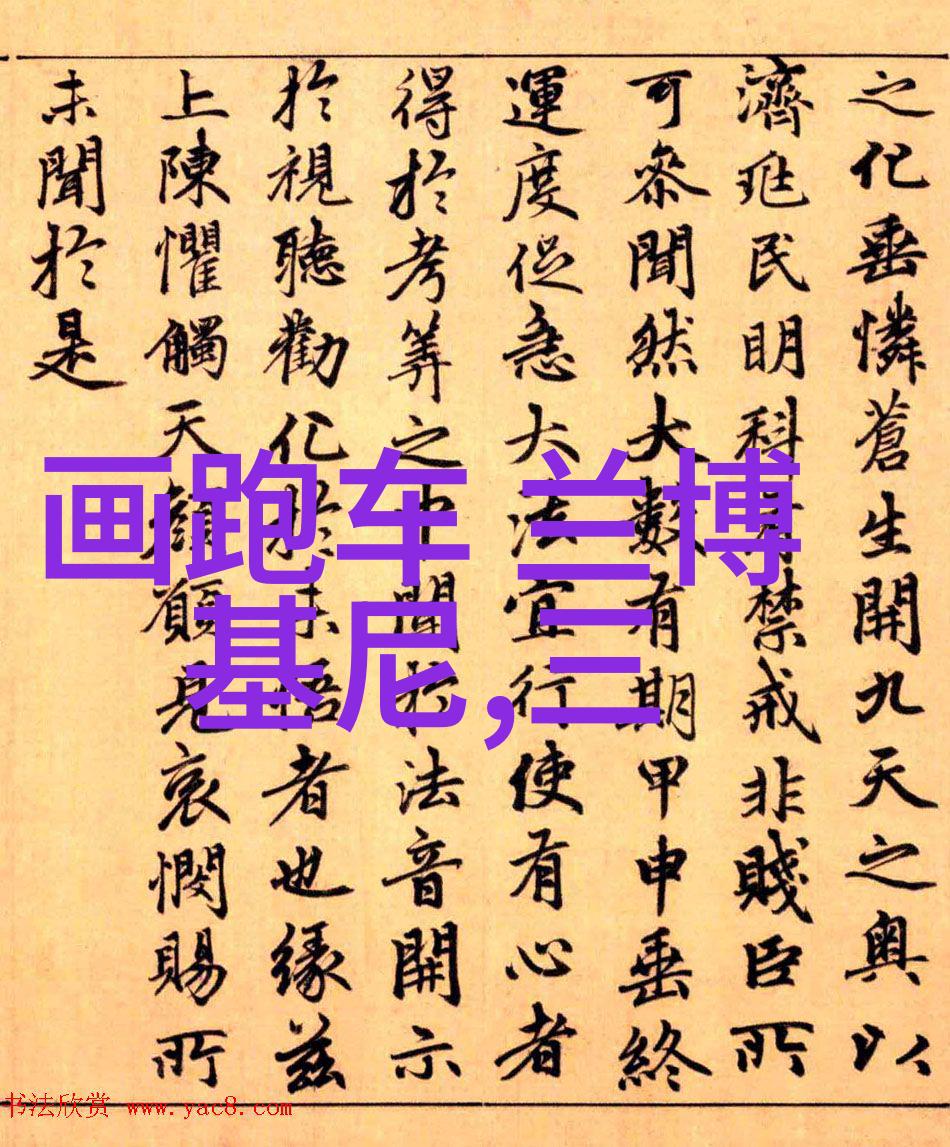 之化垂憐蒼生開九天之奧以
濟兆民明科禁戒非賤臣所
可叅聞然大數有期甲申垂終
運度促急大法宜行使有心者
得於考筭之中聞於法音開示
於視聽勸化於未悟者也緣茲
上陳懼觸天顏願見哀憫賜所
未聞於是
画跑车 兰博
基尼,三
书法欣赏 www.yac8.com